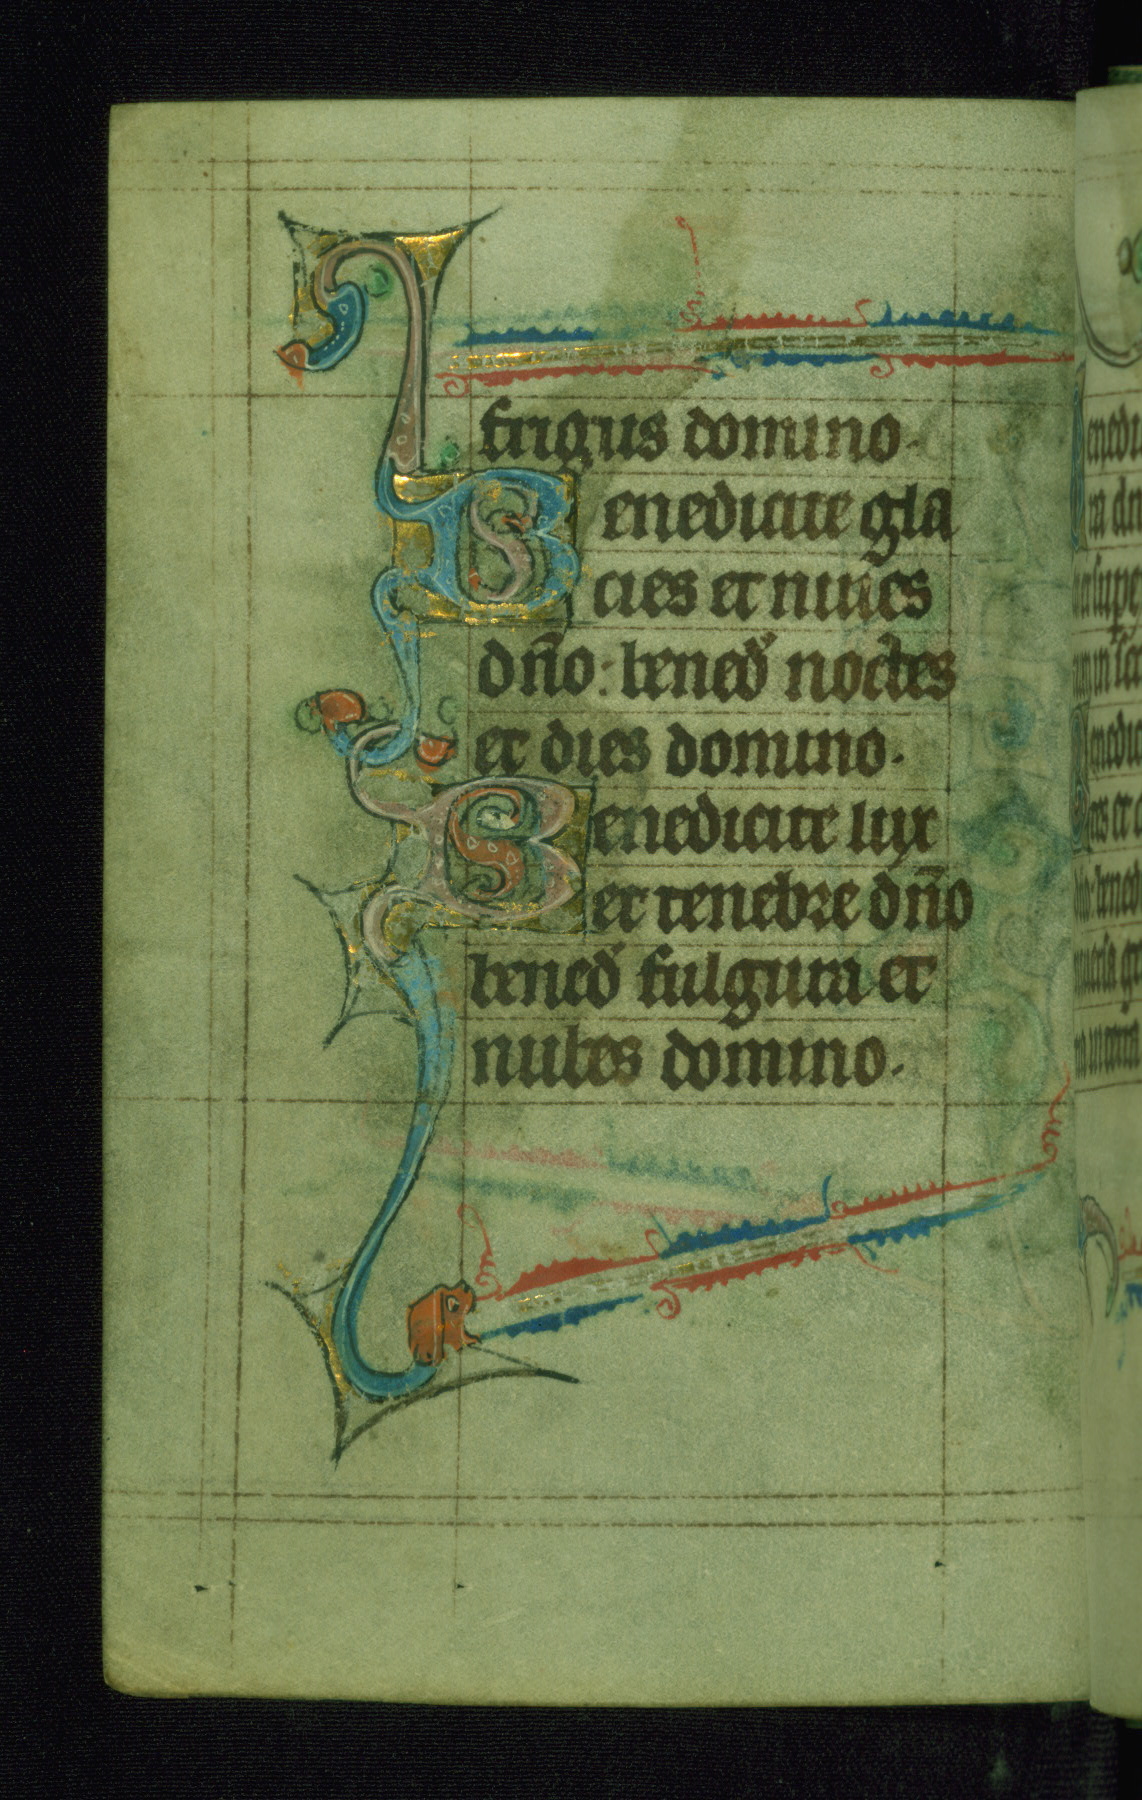 frigus domino.
Benedicite gla
cies et niues
dño: bened noctes
et dies domino.
Benedicite lux
et tenebre dño
bened fulgura et
nubes domino.